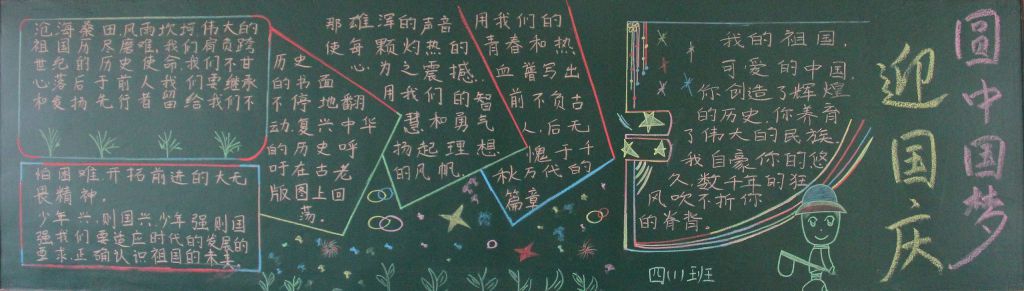 沧海桑田,风雨坎坷,伟大的
祖国历尽磨难,我们肩负跨
世纪的历史使命,我们不甘
心落后于前人,我们要继承
和发扬先行者留给我们不
怕困难开拓前进的大无
畏精神。
少年兴,则国兴,少年强则国
强我们要适应时代的发展的
要求,正确认识祖国的未来
历史
的书面
不停地翻
动,复兴中华
的历史呼
吁在古老
版图上回
荡。
那雄浑的声音
使每颗灼热的
心,为之震撼,
用我们的智
慧和勇气
扬起理想
的风帆,
用我们的
青春和热
血谱写出
前不负古
人,后无
愧于千
秋万代的
篇章
我的祖国,
可爱的中国,
你创造了辉煌
的历史,你养育
了伟大的民族,
我自豪你的悠
久,数千年的狂
风吹不折你
的脊背。
四川班
迎国庆
圆中国梦